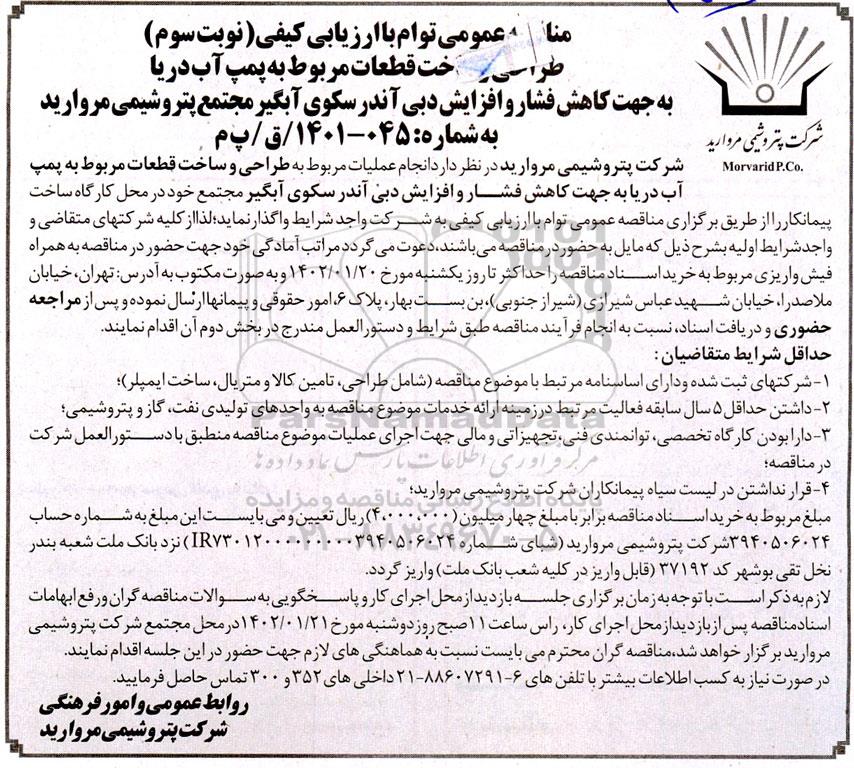 مناقصه عمومی توام با ارزیابی کیفی (نوبت سوم)
طراحی و ساخت قطعات مربوط به پمپ آب دریا
به جهت کاهش فشار و افزایش دبی آندر سکوی آبگیر مجتمع پتروشیمی مروارید
به شماره: ۰۴۵-۱۴۰۱/ق/پ م
شرکت پتروشیمی مروارید
Morvarid P.Co.
شرکت پتروشیمی مروارید در نظر دارد انجام عملیات مربوط به طراحی و ساخت قطعات مربوط به پمپ
آب دریا به جهت کاهش فشار و افزایش دبی آندر سکوی آبگیر مجتمع خود در محل کارگاه ساخت
پیمانکار را از طریق برگزاری مناقصه عمومی توام با ارزیابی کیفی به شرکت واجد شرایط واگذار نماید؛ لذا از کلیه شرکتهای متقاضی و
واجد شرایط اولیه بشرح ذیل که مایل به حضور در مناقصه می‌باشند، دعوت می گردد مراتب آمادگی خود جهت حضور در مناقصه به همراه
فیش واریزی مربوط به خرید اسناد مناقصه را حداکثر تا روز یکشنبه مورخ ۱۴۰۲/۰۱/۲۰ و به صورت مکتوب به آدرس: تهران، خیابان
ملاصدرا، خیابان شهید عباس شیرازی (شیراز جنوبی)، بن بست بهار، پلاک ۶، امور حقوقی و پیمانها ارسال نموده و پس از مراجعه
حضوری و دریافت اسناد، نسبت به انجام فرآیند مناقصه طبق شرایط و دستورالعمل مندرج در بخش دوم آن اقدام نمایند.
حداقل شرایط متقاضیان:
۱-شرکتهای ثبت شده و دارای اساسنامه مرتبط با موضوع مناقصه (شامل طراحی، تامین کالا و متریال، ساخت ایمپلر)؛
۲-داشتن حداقل ۵ سال سابقه فعالیت مرتبط در زمینه ارائه خدمات موضوع مناقصه به واحدهای تولیدی نفت، گاز و پتروشیمی؛
۳-دارا بودن کارگاه تخصصی، توانمندی فنی، تجهیزاتی و مالی جهت اجرای عملیات موضوع مناقصه منطبق با دستورالعمل شرکت
در مناقصه؛
۴-قرار نداشتن در لیست سیاه پیمانکاران شرکت پتروشیمی مروارید؛
مبلغ مربوط به خرید اسناد مناقصه برابر با مبلغ چهار میلیون (۴.۰۰۰.۰۰۰) ریال تعیین و می بایست این مبلغ به شماره حساب
۳۹۴۰۵۰۶۰۲۴ شرکت پتروشیمی مروارید (شبای شماره IR۷۳۰۱۲۰۰۰۰۰۰۰۰۰۳۹۴۰۵۰۶۰۲۴) نزد بانک ملت شعبه بندر
نخل تقی بوشهر کد ۳۷۱۹۲ (قابل واریز در کلیه شعب بانک ملت) واریز گردد.
لازم به ذکر است با توجه به زمان برگزاری جلسه بازدید از محل اجرای کار و پاسخگویی به سوالات مناقصه گران و رفع ابهامات
اسناد مناقصه پس از بازدید از محل اجرای کار، راس ساعت ۱۱ صبح روز دوشنبه مورخ ۱۴۰۲/۰۱/۲۱ در محل مجتمع شرکت پتروشیمی
مروارید برگزار خواهد شد، مناقصه گران محترم می بایست نسبت به هماهنگی های لازم جهت حضور در این جلسه اقدام نمایند.
در صورت نیاز به کسب اطلاعات بیشتر با تلفن های ۶-۸۸۶۰۷۲۹۱-۰۲۱ داخلی های ۳۵۲ و ۳۰۰ تماس حاصل فرمایید.
روابط عمومی و امور فرهنگی
شرکت پتروشیمی مروارید
ParsNamadData
مرکز فرآوری اطلاعات پارس نماد داده ها
پایگاه اطلاع رسانی مناقصه و مزایده
۰۲۱-۸۸۳۴۹۶۷۰-۵